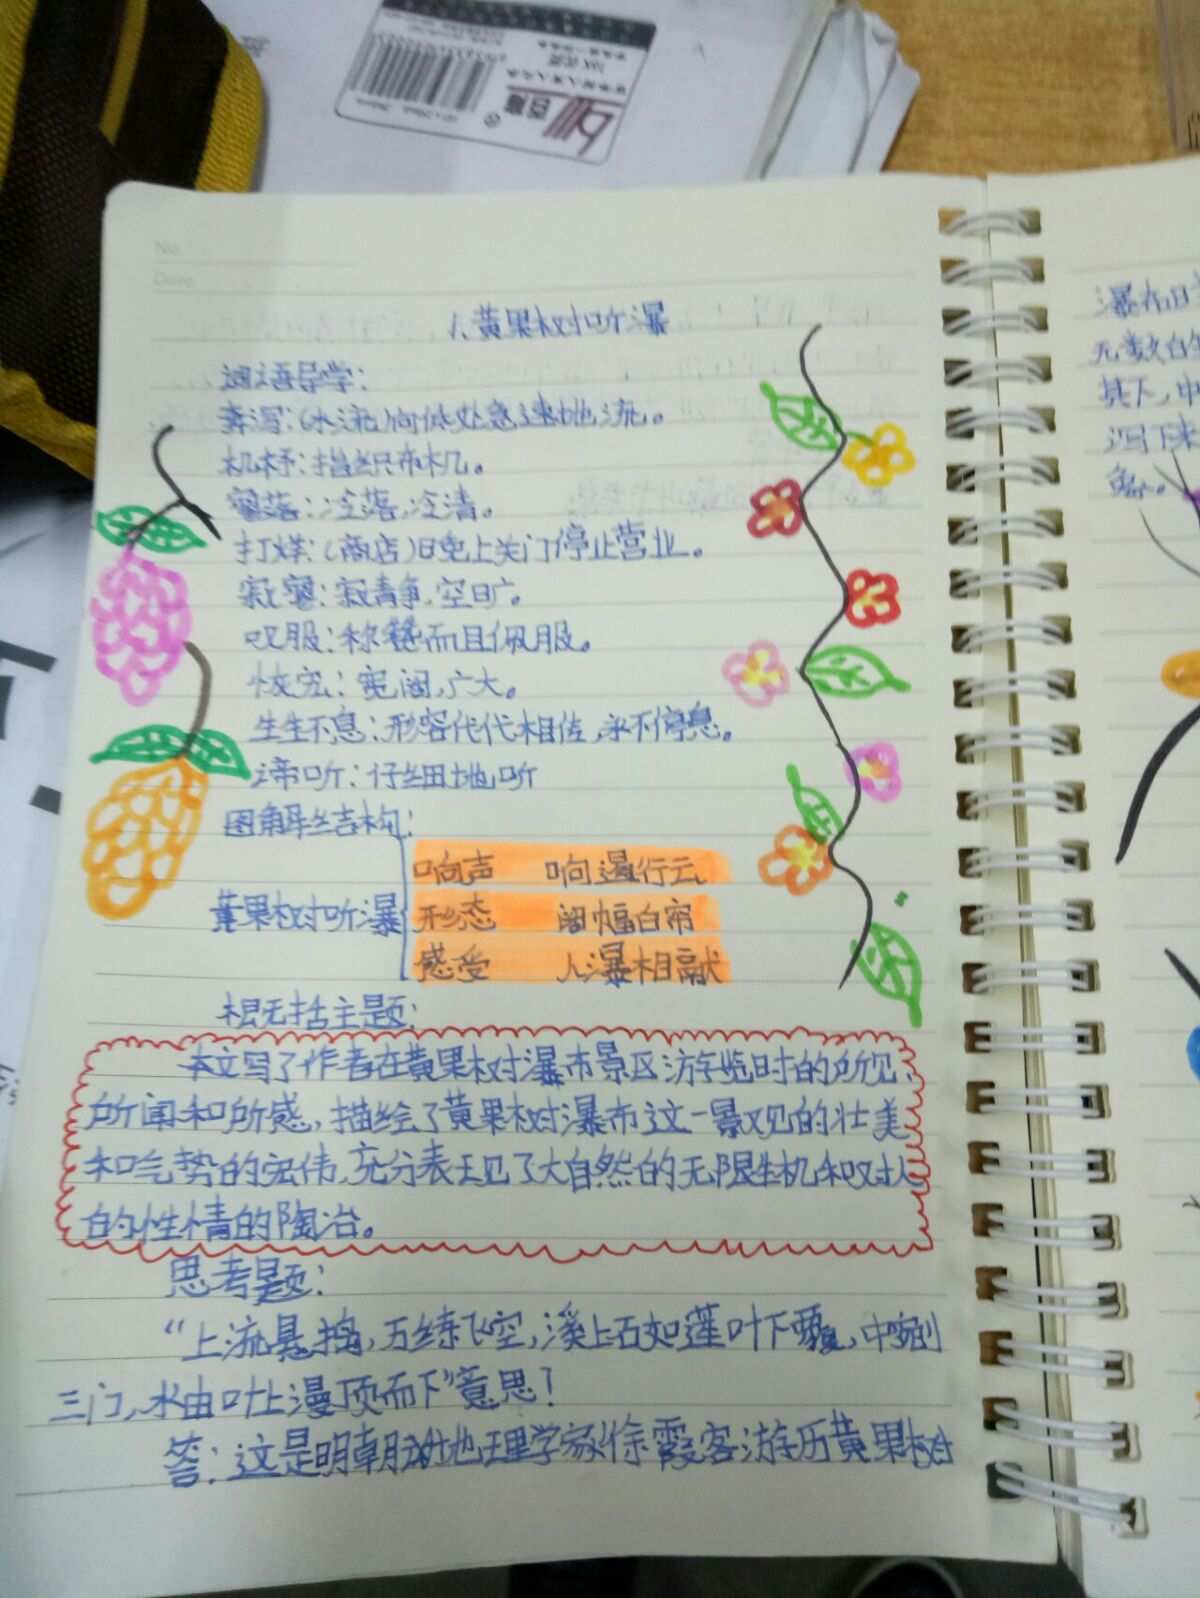 No.
Date
1、黄果树听瀑
词语导学：
奔泻：(水流)向低处急速地流。
机杼：指织布机。
寥落：冷落，冷清。
打烊：(商店)晚上关门停止营业。
寂寥：寂静，空旷。
叹服：称赞而且佩服。
恢宏：宽阔，广大。
生生不息：形容代代相传，永不停息。
谛听：仔细地听
图解结构：
响声 响遏行云
黄果树听瀑
形态 阔幅白帘
感受 人瀑相融
概括主题：
本文写了作者在黄果树瀑布景区游览时的所见、
所闻和所感，描绘了黄果树瀑布这一景观的壮美
和气势的宏伟，充分表现了大自然的无限生机和对人
的性情的陶冶。
思考题：
“上流悬捣，万练飞空，溪上石如莲叶下覆，中剜
三门，水由叶上漫顶而下”意思！
答：这是明朝地理学家徐霞客游历黄果树
瀑布
无数白
其下，中
泻下来
象。